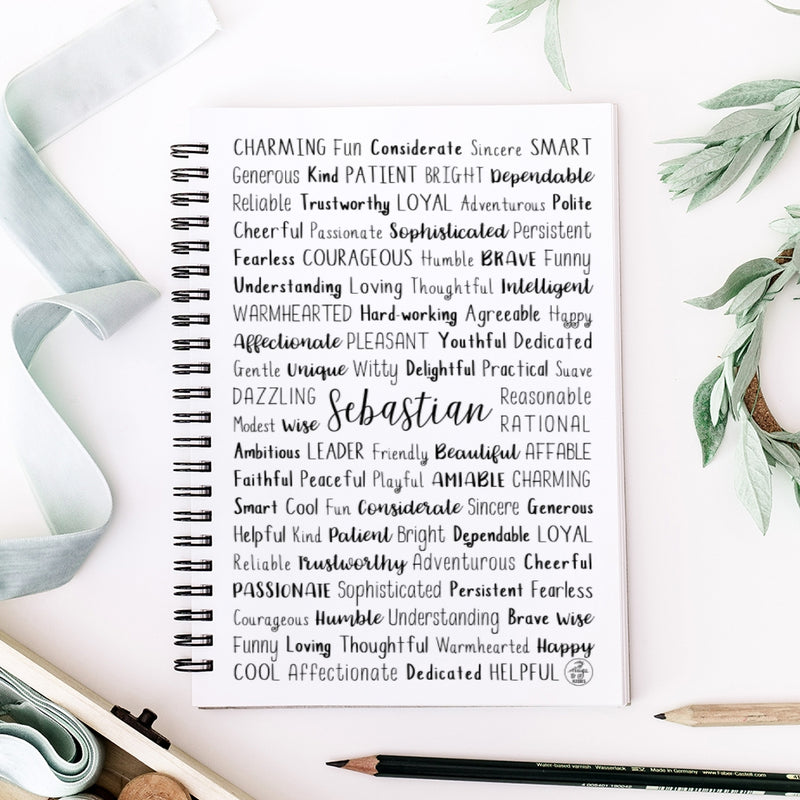 CHARMING Fun Considerate Sincere SMART
Generous Kind PATIENT BRIGHT Dependable
Reliable Trustworthy LOYAL Adventurous Polite
Cheerful Passionate Sophisticated Persistent
Fearless COURAGEOUS Humble BRAVE Funny
Understanding Loving Thoughtful Intelligent
WARMHEARTED Hard-working Agreeable Happy
Affectionate PLEASANT Youthful Dedicated
Gentle Unique Witty Delightful Practical Suave
DAZZLING Reasonable
Sebastian
Modest Wise RATIONAL
Ambitious LEADER Friendly Beautiful AFFABLE
Faithful Peaceful Playful AMIABLE CHARMING
Smart Cool Fun Considerate Sincere Generous
Helpful Kind Patient Bright Dependable LOYAL
Reliable Trustworthy Adventurous Cheerful
PASSIONATE Sophisticated Persistent Fearless
Courageous Humble Understanding Brave Wise
Funny Loving Thoughtful Warmhearted Happy
COOL Affectionate Dedicated HELPFUL
Water-based varnish Wasserlack Made in Germany www.Faber-Castell.com